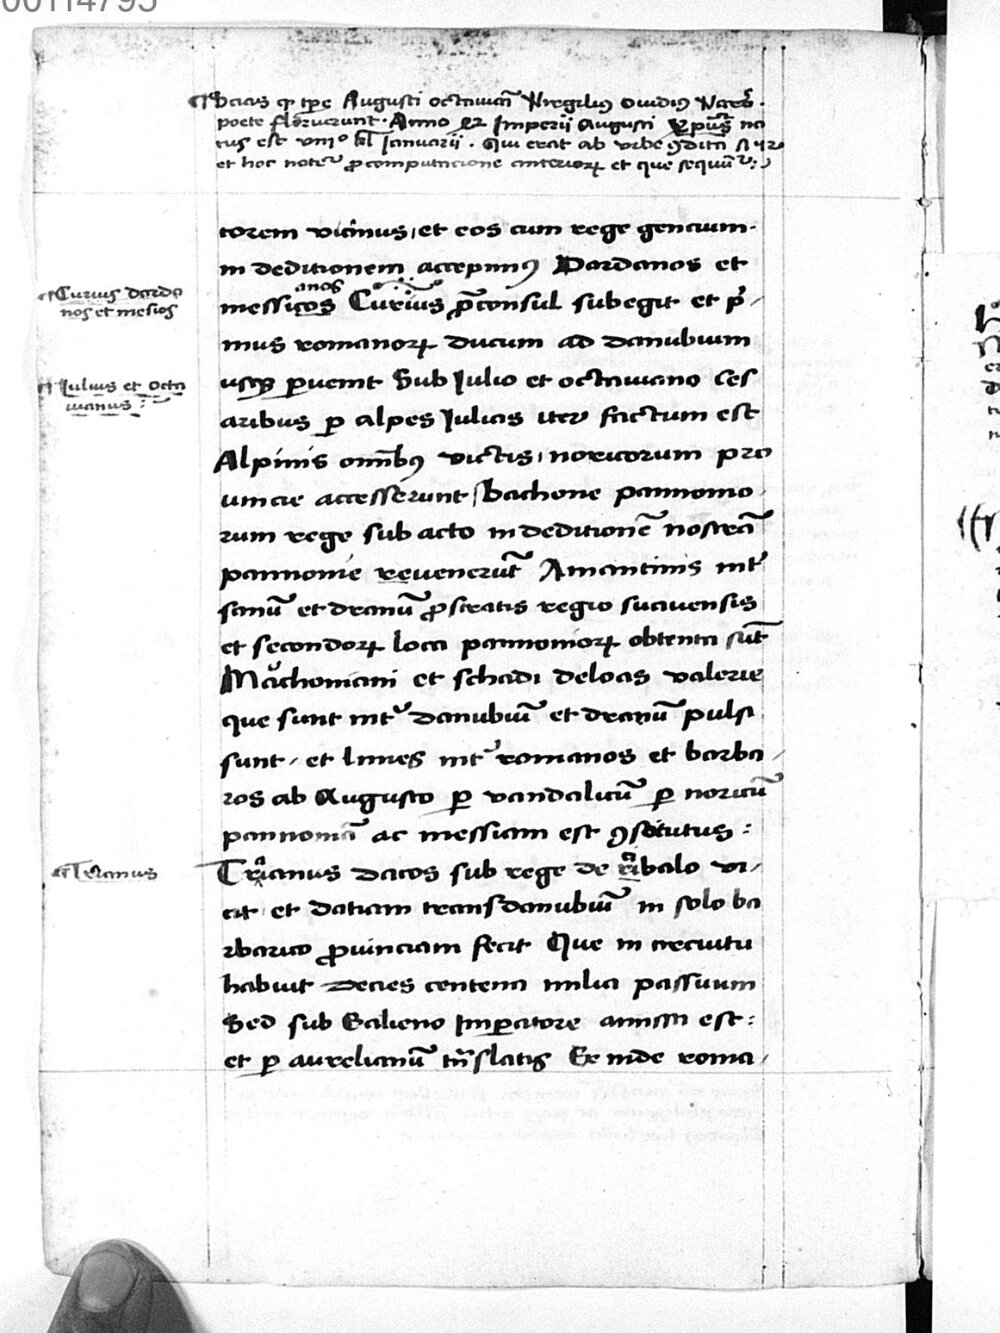 00114795
Scias q̄ tp̄e Augusti octauiani Virgiliꝰ ouidiꝰ
poete floruerunt · Anno 42 Imperii Augusti xp̄us na
tus est viiiº kl Ianuarii · Qui erat ab vrbe ꝯdita
et hoc notetur ꝓ computacione anteriorꝝ et que sequūtur :
torem vicimus, et eos cum rege gencium ·
in deditionem accepimꝰ Dardanos et
messicos anos Curius p̄consul subegit et p̄ /
mus romanorꝝ ducum ad danubium
usqꝫ ꝑuenit Sub Iulio et octauiano Ces
aribus ꝑ alpes Iulias iter factum est
Alpinis om̄ibꝰ victis, noricorum pro
uincie accesserunt, bachone pannonio /
rum rege sub acto in deditionē nostrā
pannonie reuenerūt Amantinis int̄
sauū et drauū ꝓstratis regio suauensis
et secondorꝝ loca pannoniorꝝ obtenta sūt
Marchomani et schadi deloas valerie
que sunt int̄ danubiū et drauū pulsi
sunt / et limes int̄ romanos et barba /
ros ab Augusto ꝑ vandalicū ꝑ noricū
pannoniā ac messiam est ꝯstitutus :
Traianus dacos sub rege de cibalo vi /
cit et datiam transdanubiū in solo ba
rbarico ꝓuinciam fecit Que in circuitu
habuit decies centena milia passuum
Sed sub Galieno Imꝑatore amissa est :
et ꝑ aurelianū trāslatis Ex inde roma /
Curius dardo
nos et mesios
Iulius et Octa
uianus :
Traianus